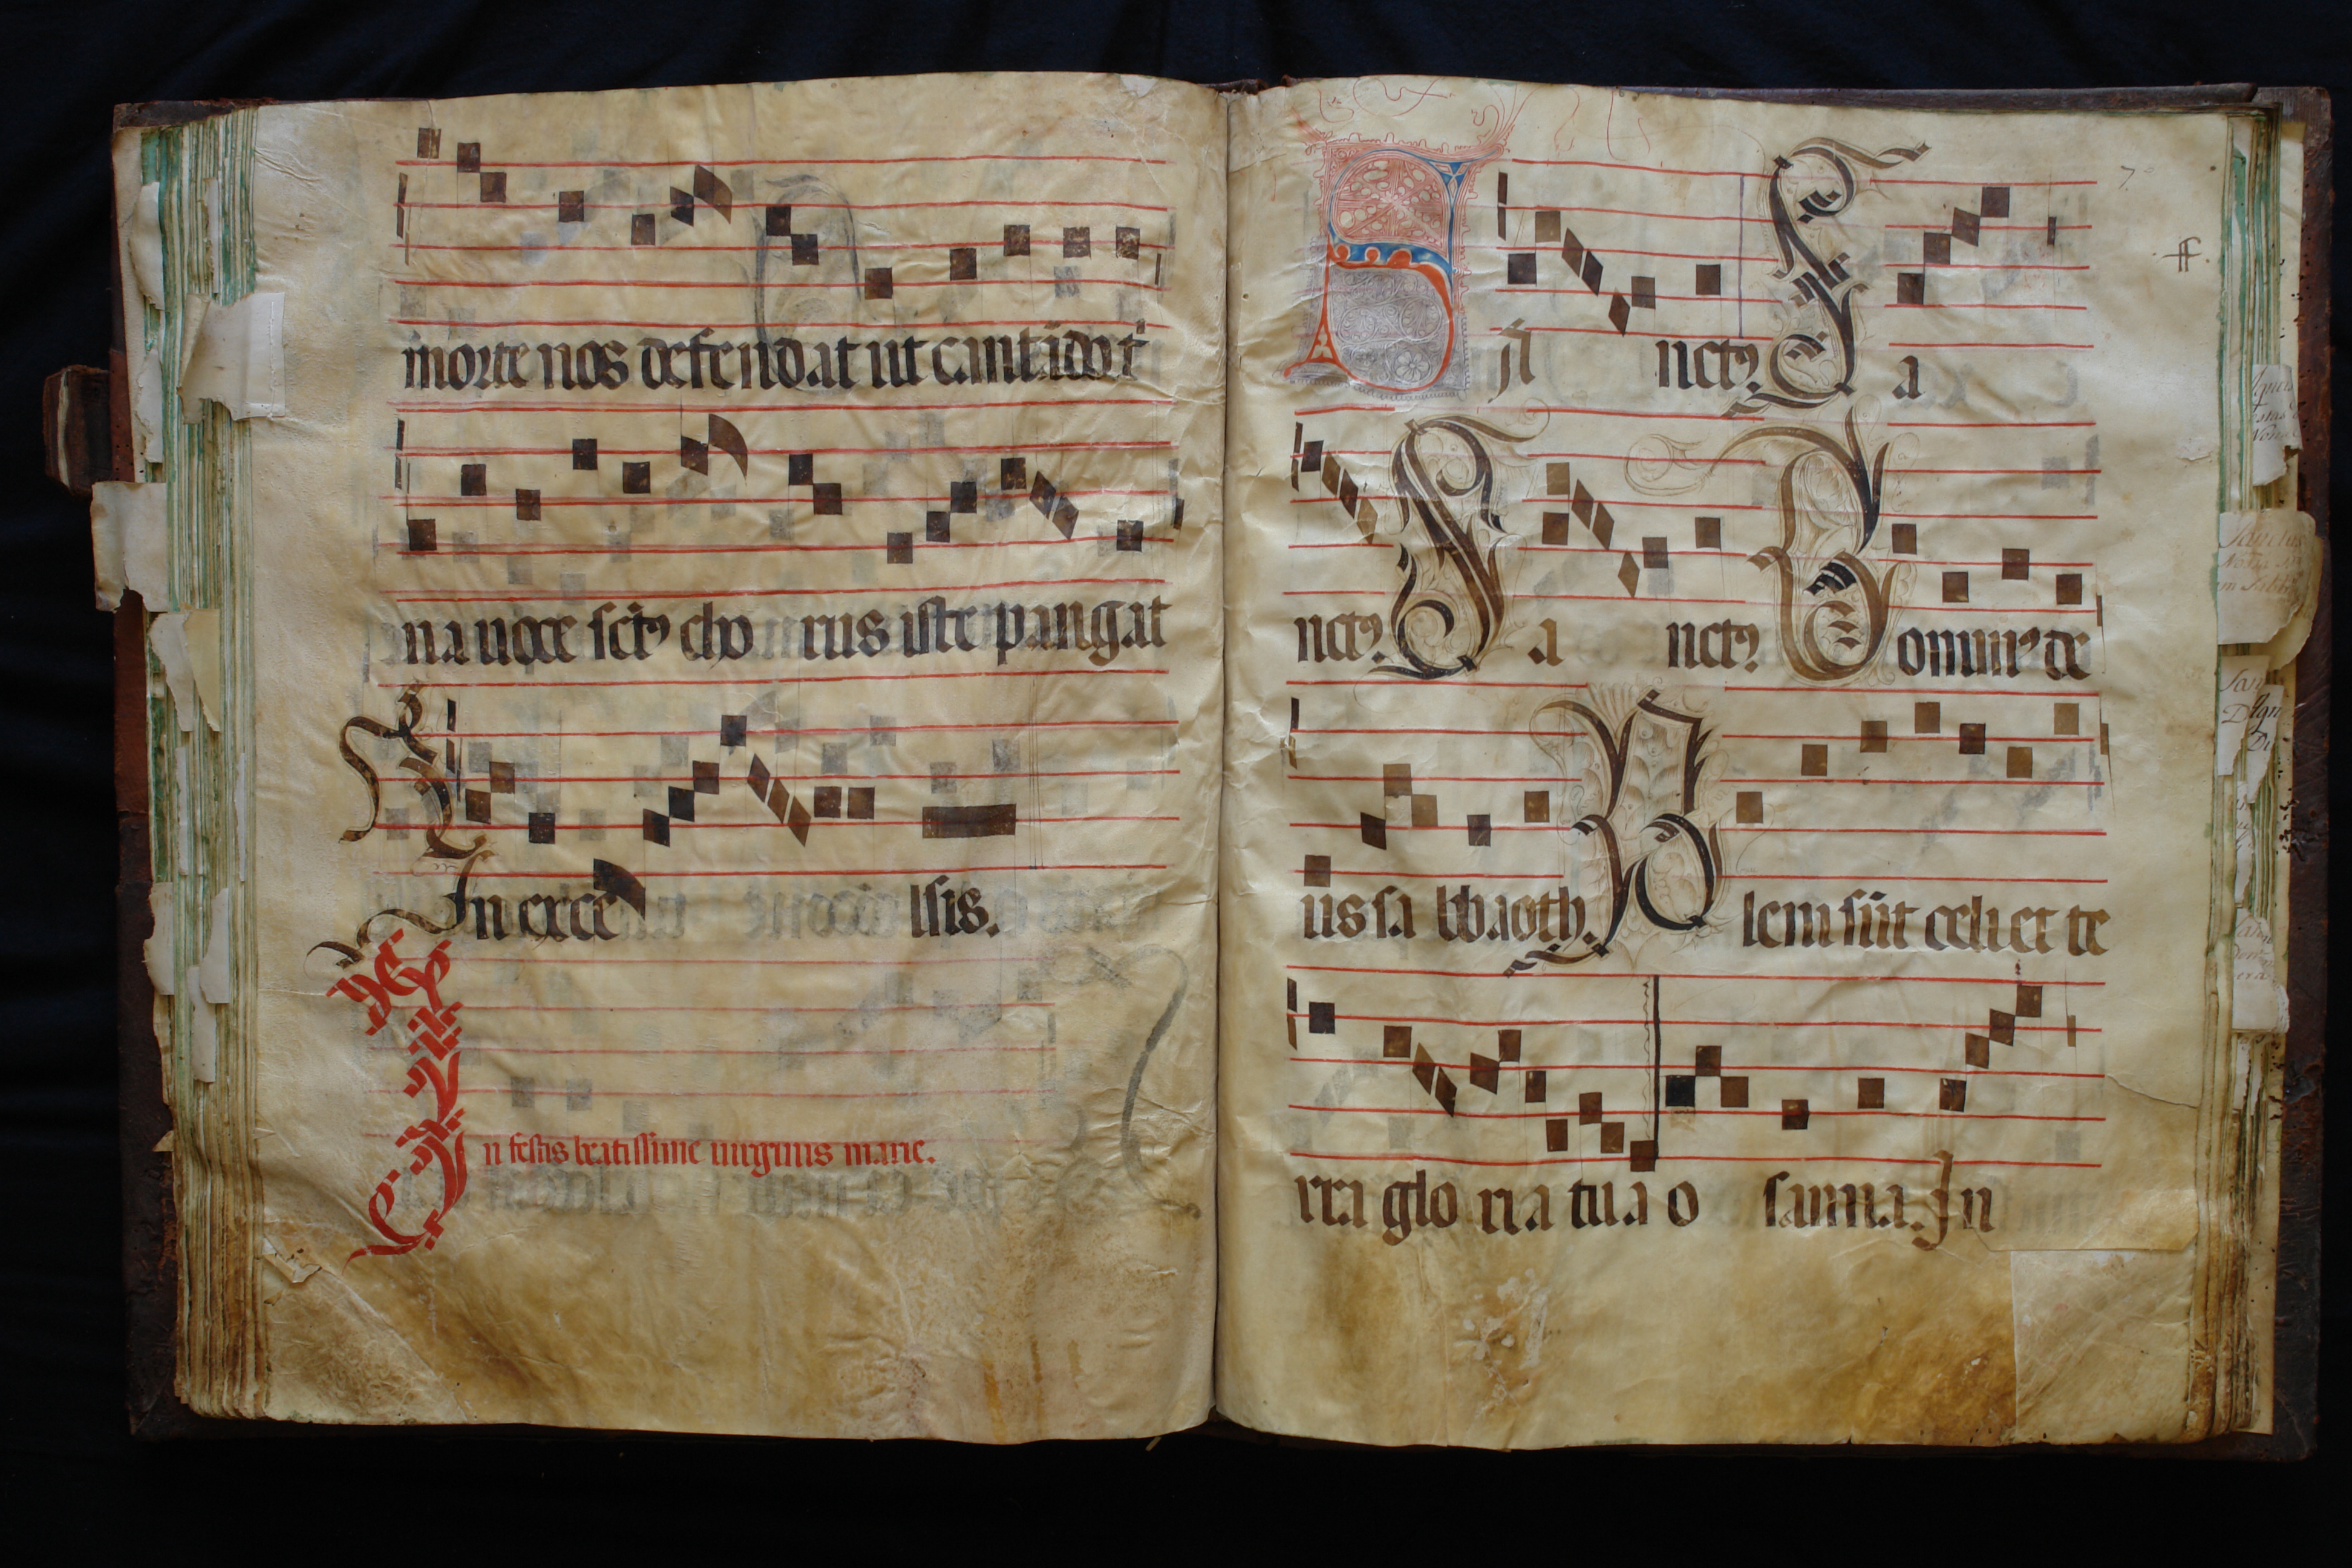 morte nos defendat ut cantido t
na uoce sctꝰ cho rus iste pangat
In exce lsis.
In festis beatissime uirginis marie.
7
Sa nctꝰ. Sa
nctꝰ. Sa nctꝰ. Dominꝰ de
us sa bbaoth. Pleni sūt celi et te
rra glo ria tua o sanna. In